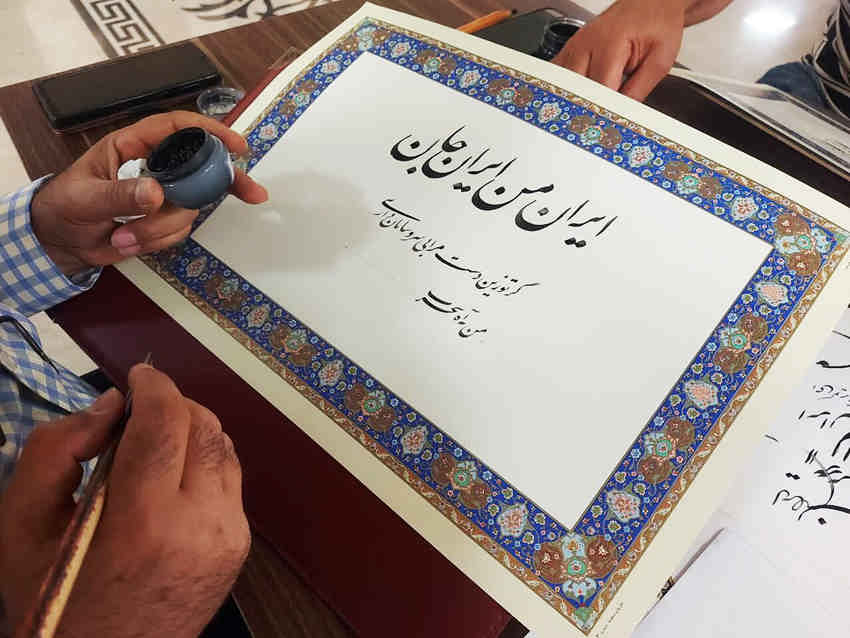 ایران من ایران جان
گر تو زین دست مرا بی سر و سامان داری
من به آه سحر